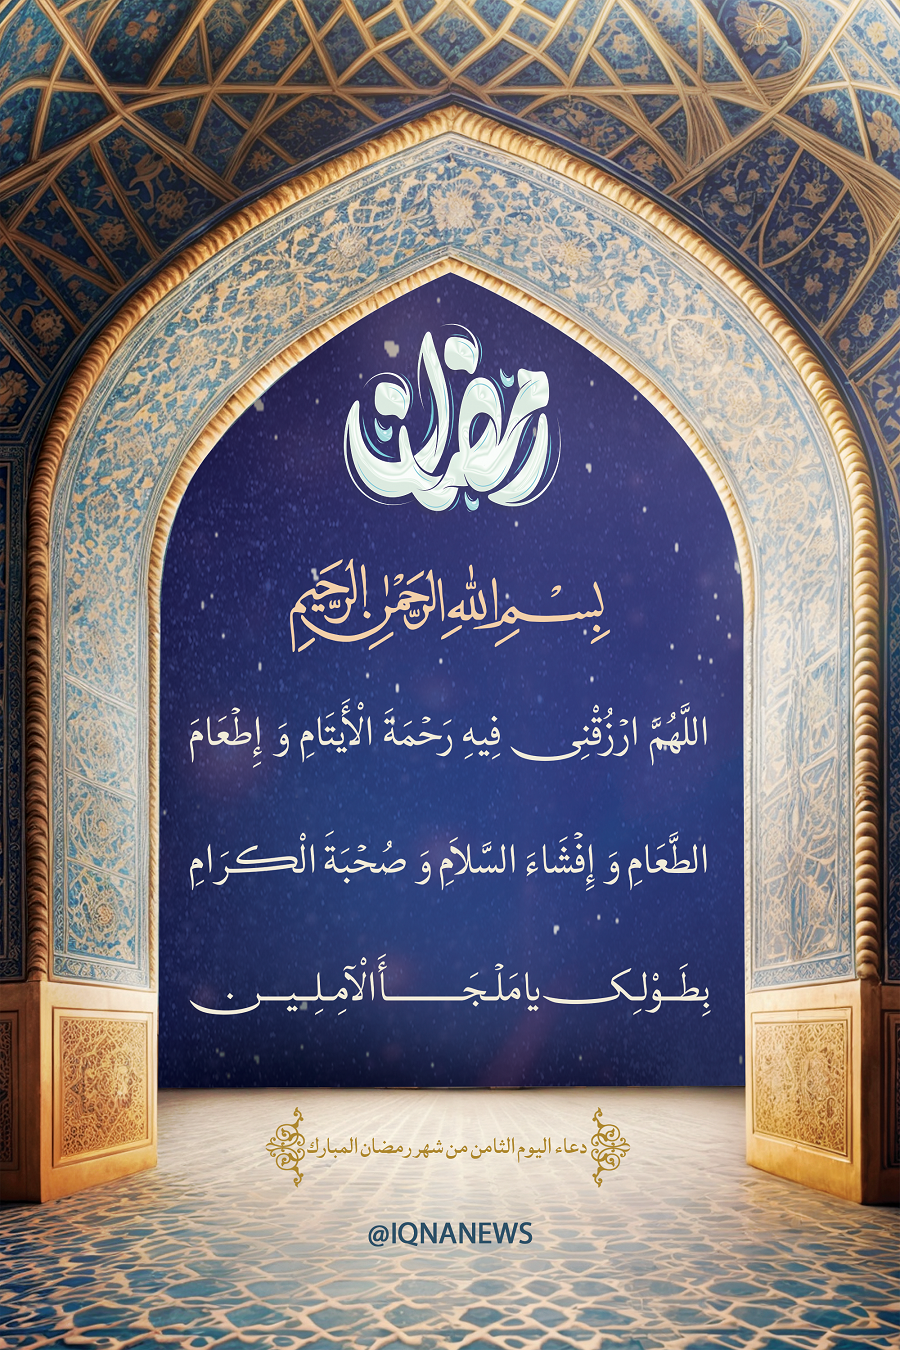 رمضان
بِسْمِ اللهِ الرَّحْمٰنِ الرَّحِيمِ
اللَّهُمَّ ارْزُقْنِی فِيهِ رَحْمَةَ الْأَيْتَامِ وَ إِطْعَامَ
الطَّعَامِ وَ إِفْشَاءَ السَّلاَمِ وَ صُحْبَةَ الْكَرَامِ
بِطَوْلِکَ يا مَلْجَأَ الْآمِلِينَ
دعاء اليوم الثامن من شهر رمضان المبارك
@IQNANEWS